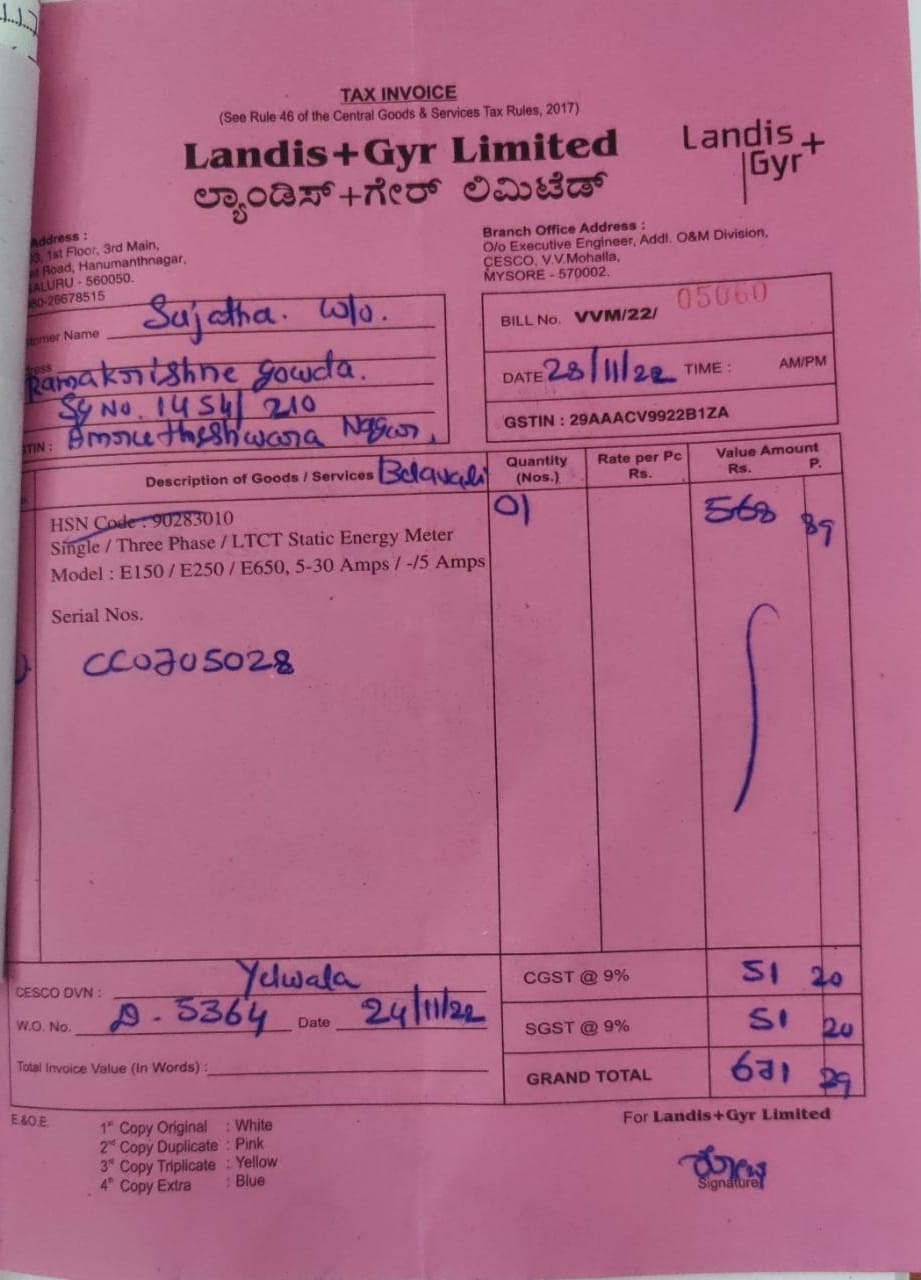 TAX INVOICE
(See Rule 46 of the Central Goods & Services Tax Rules, 2017)
Landis+Gyr Limited
ಲ್ಯಾಂಡಿಸ್+ಗೇರ್ ಲಿಮಿಟೆಡ್
Landis+
Gyr
Address :
1st Floor, 3rd Main,
Road, Hanumanthnagar,
ALURU - 560050.
080-26678515
Branch Office Address :
O/o Executive Engineer, Addl. O&M Division,
CESCO, V.V.Mohalla,
MYSORE - 570002.
omer Name Sujatha. W/o.
ress Ramakrishne gowda.
Sy No. 1454/ 210
TIN : Amrutheshwara Nagar,
BILL No. VVM/22/ 05060
DATE 28/11/22 TIME : AM/PM
GSTIN : 29AAACV9922B1ZA
Description of Goods / Services Belavadi
Quantity (Nos.)
Rate per Pc Rs.
Value Amount Rs. P.
HSN Code : 90283010 01 568 89
Single / Three Phase / LTCT Static Energy Meter
Model : E150 / E250 / E650, 5-30 Amps / -/5 Amps
Serial Nos.
CC0705028
CESCO DVN : Yelwala
W.O. No. D - 5364 Date 24/11/22
Total Invoice Value (In Words) :
CGST @ 9% 51 20
SGST @ 9% 51 20
GRAND TOTAL 671 29
E.&O.E.
1st Copy Original : White
2nd Copy Duplicate : Pink
3rd Copy Triplicate : Yellow
4th Copy Extra : Blue
For Landis+Gyr Limited
Signature